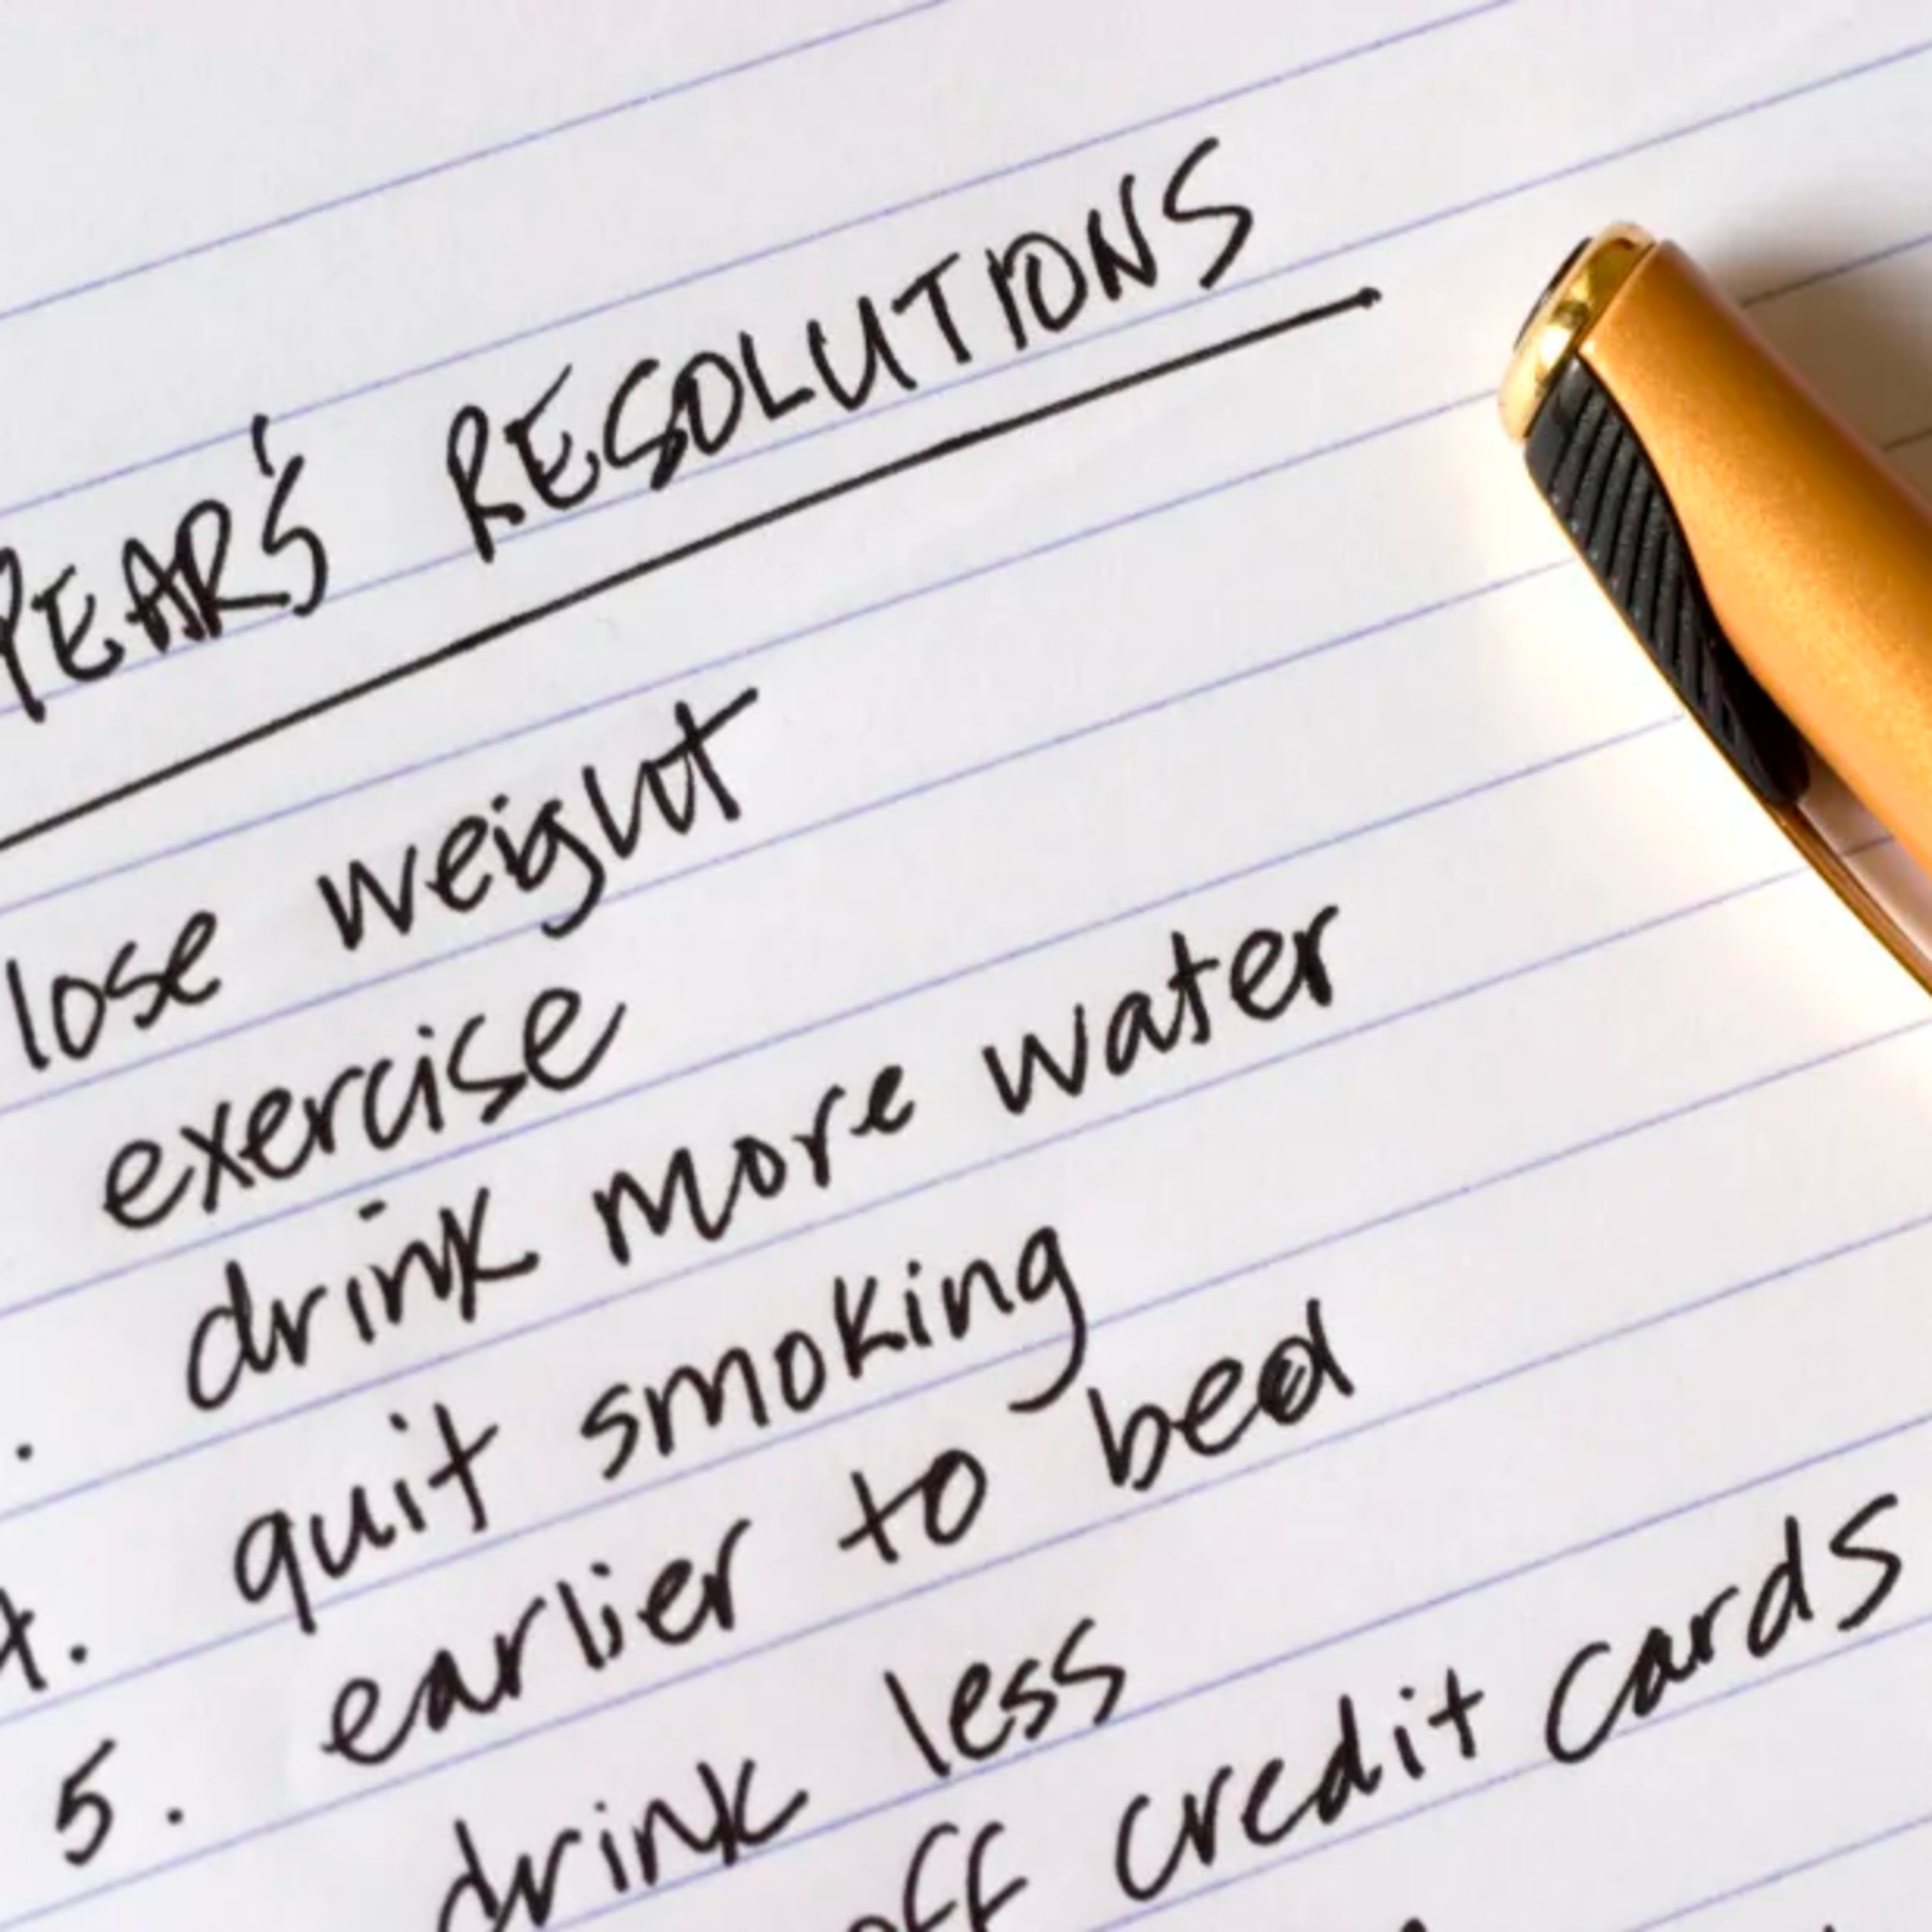 YEAR'S RESOLUTIONS
lose weight
exercise
. drink more water
4. quit smoking
5. earlier to bed
drink less
off credit cards